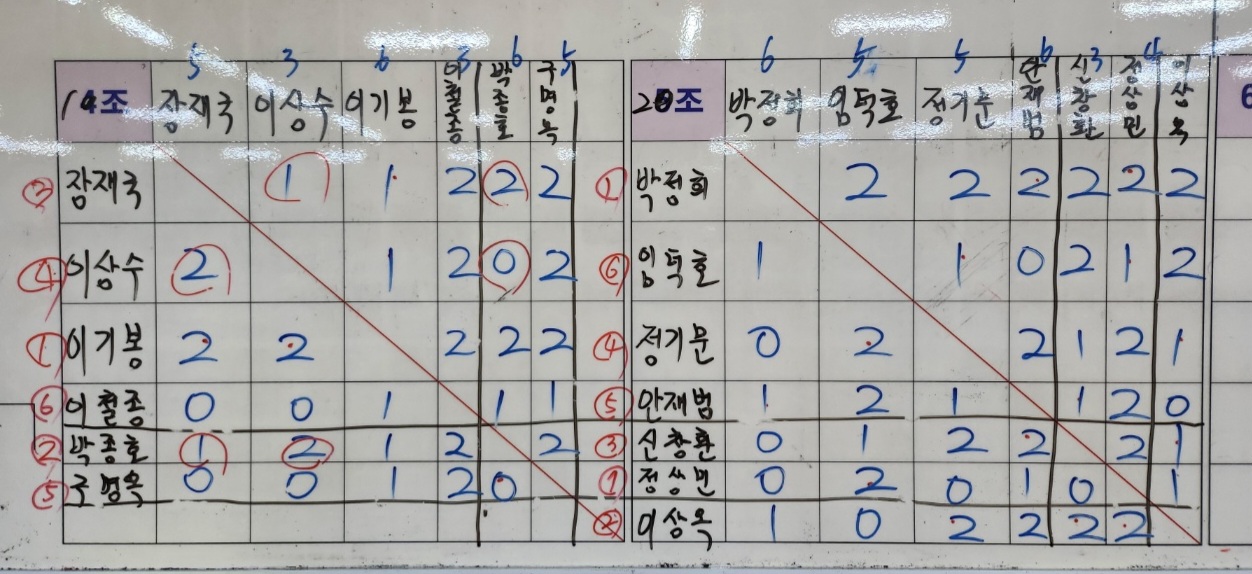 5 3 6 5 6 5
1조 장재국 이상수 이기봉 이철종 박종호 구명옥
③ 장재국 1 1 2 2 2
④ 이상수 2 1 2 0 2
① 이기봉 2 2 2 2 2
⑥ 이철종 0 0 1 1 1
② 박종호 1 2 1 2 2
⑤ 구명옥 0 0 1 2 0
6 5 5 6 3 4
2조 박정희 임덕호 정기문 안재범 신창환 정상민 이상옥
① 박정희 2 2 2 2 2 2
⑥ 임덕호 1 1 0 2 1 2
④ 정기문 0 2 2 1 2 1
⑤ 안재범 1 2 1 1 2 0
③ 신창환 0 1 2 2 2 1
⑦ 정상민 0 2 0 1 0 1
② 이상옥 1 0 2 2 2 2
6